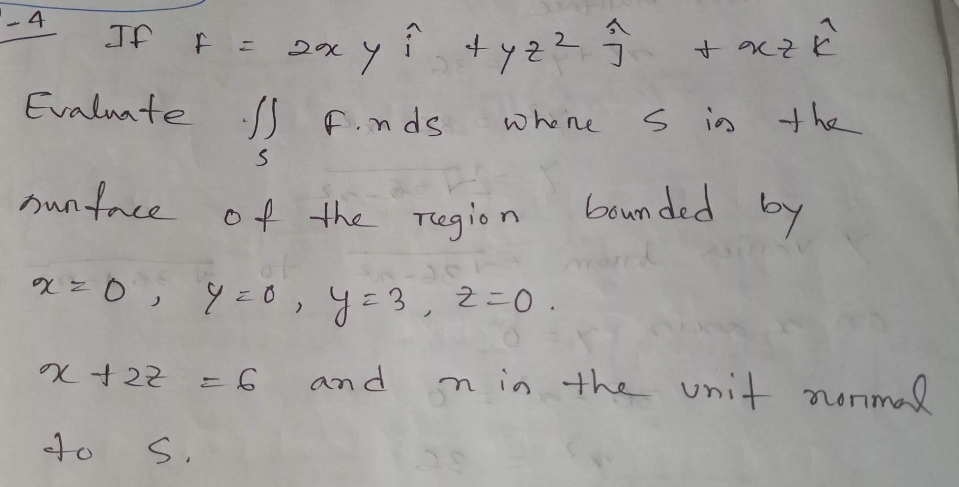 -4 If F = 2xy î + yz² ĵ + xz k̂
Evaluate ∬ F.n ds where S is the
S
surface of the region bounded by
x=0, y=0, y=3, z=0.
x+2z = 6 and n is the unit normal
to S.